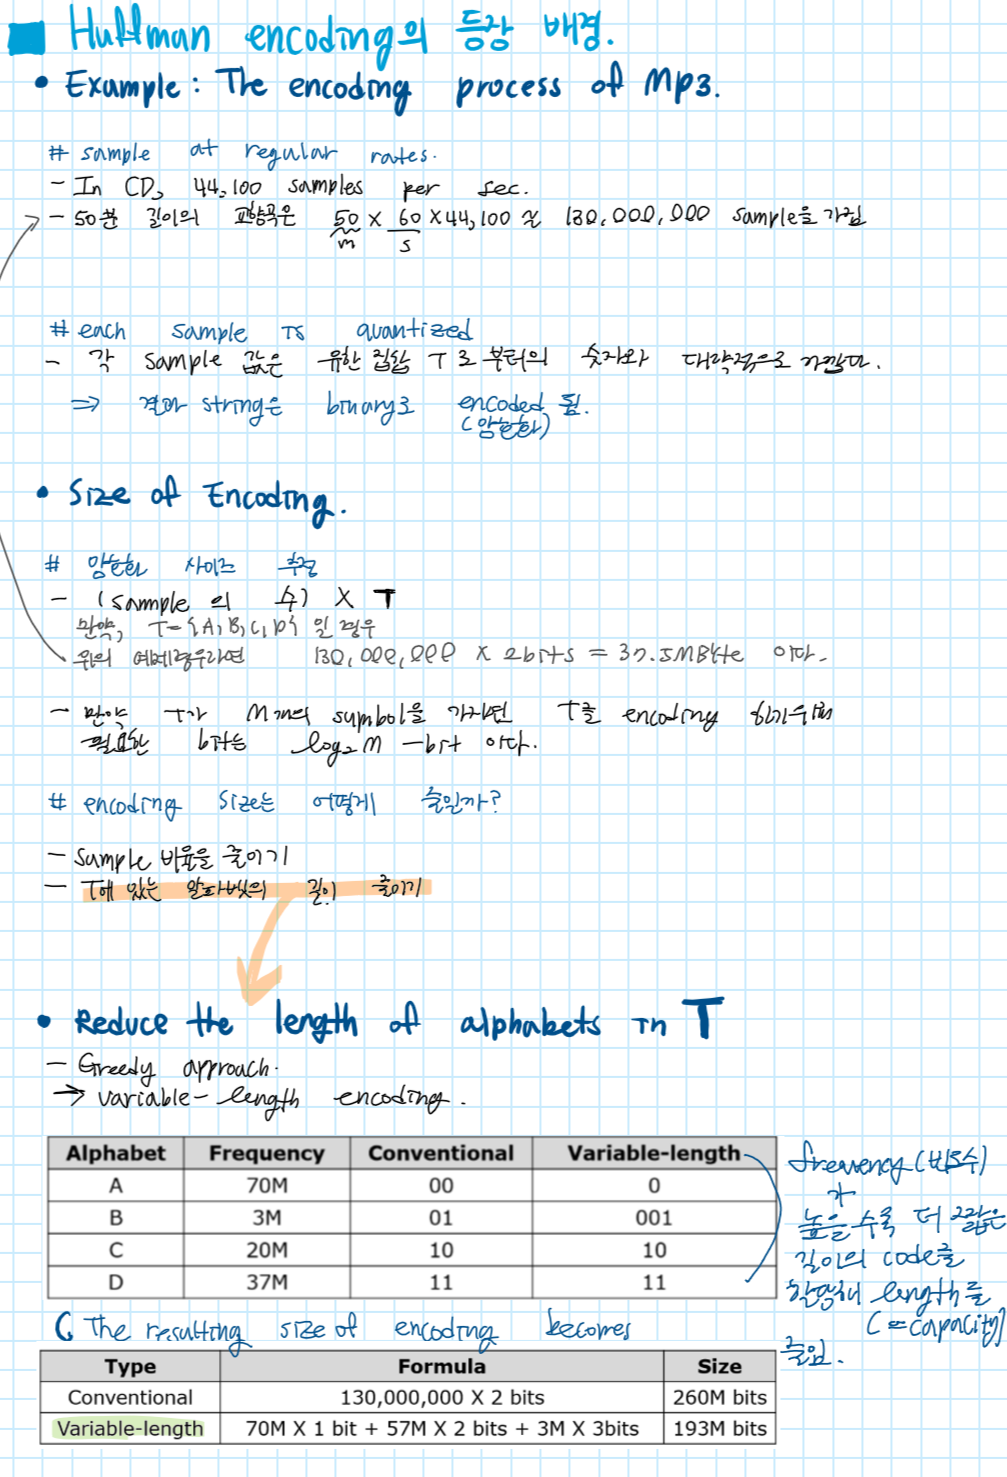 Huffman encoding의 등장 배경.
• Example : The encoding process of Mp3.
# sample at regular rates.
- In CD, 44,100 samples per sec.
- 50분 길이의 교향곡은 50 × 60 × 44,100 ≈ 130,000,000 sample을 가짐
m s
# each sample is quantized
- 각 sample 값은 유한 집합 T로 부터의 숫자와 대략적으로 가깝다.
⇒ 결과 string은 binary로 encoded 됨.
(암호화)
• Size of Encoding.
# 암호화 사이즈 추정
- (sample 의 수) × T
만약, T={A,B,C,D} 일 경우
위의 예제경우라면 130,000,000 × 2bits = 32.5MByte 이다.
- 만약 T가 M개의 symbol을 가지면 T를 encoding 하기위해
필요한 bit는 log₂M -bit 이다.
# encoding size는 어떻게 줄일까?
- Sample 비율을 줄이기
- T에 있는 알파벳의 길이 줄이기
• Reduce the length of alphabets in T
- Greedy approach.
→ variable-length encoding.
Alphabet Frequency Conventional Variable-length
A 70M 00 0
B 3M 01 001
C 20M 10 10
D 37M 11 11
frequency(빈도수)
가
높을수록 더 짧은
길이의 code를
할당해 length를
(=capacity)
줄임.
The resulting size of encoding becomes
Type Formula Size
Conventional 130,000,000 X 2 bits 260M bits
Variable-length 70M X 1 bit + 57M X 2 bits + 3M X 3bits 193M bits